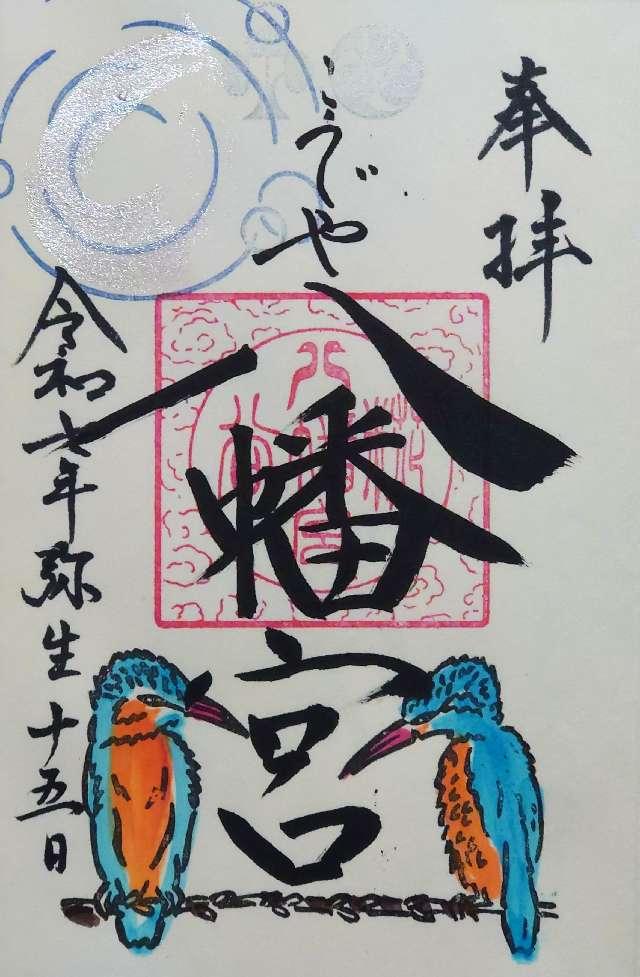 奉拝
こうじや
八幡宮
令和七年弥生十五日